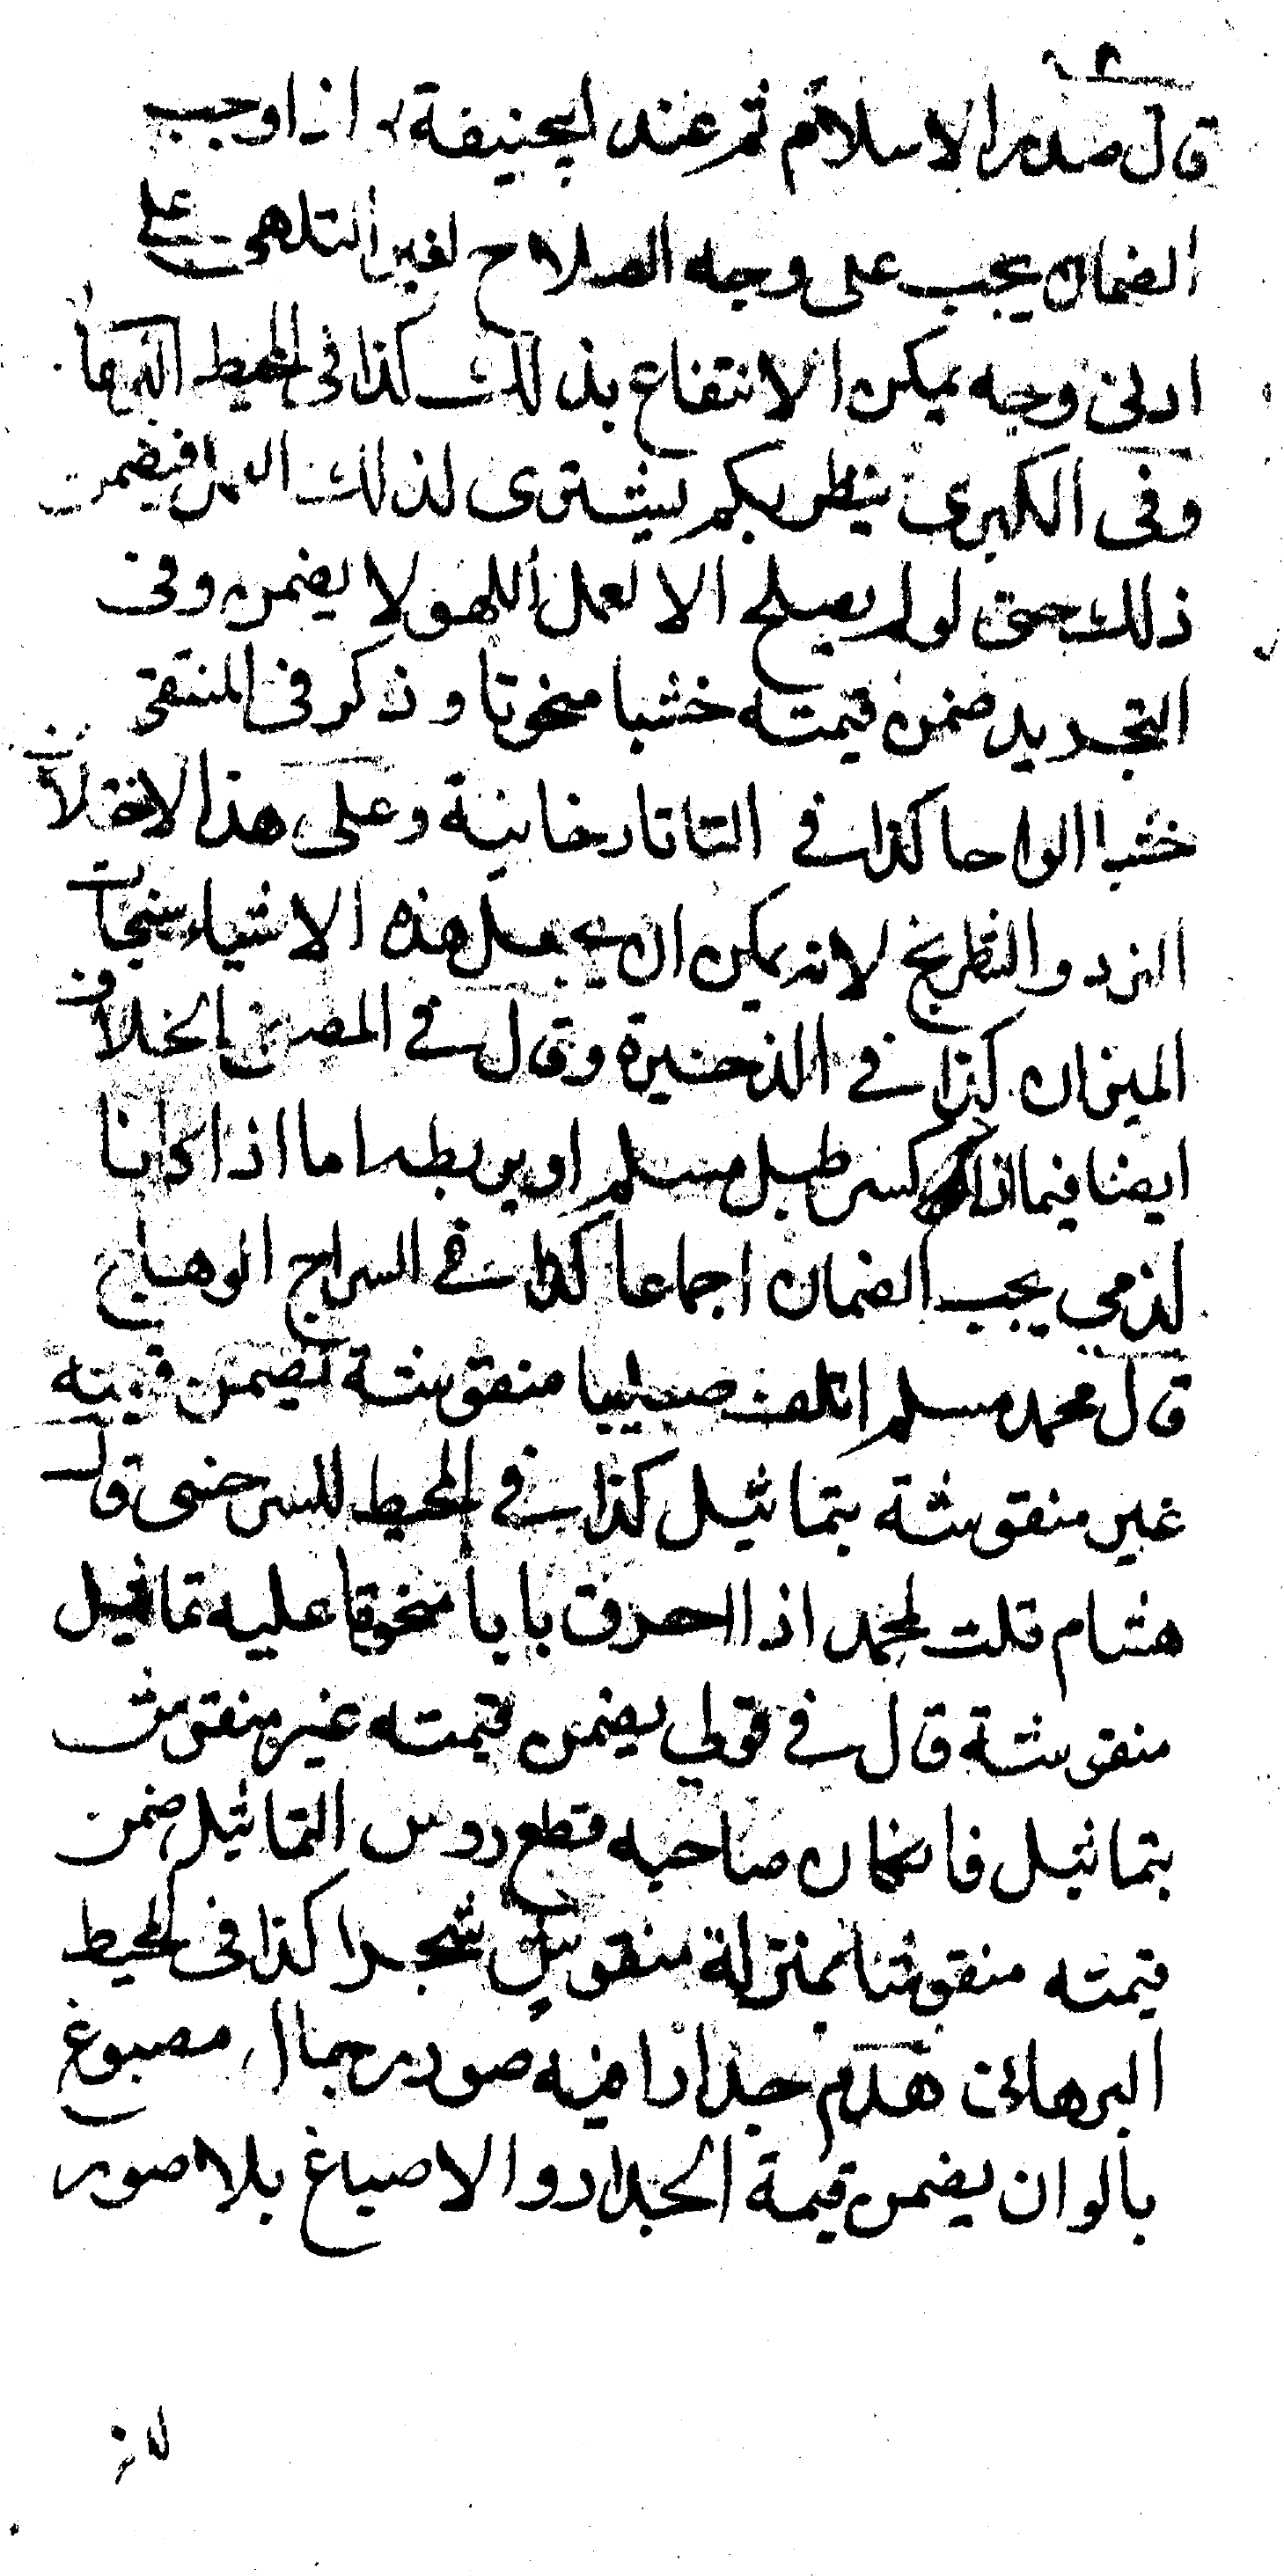 قال صدر الاسلام ثم عند ابيحنيفة رح اذا وجب
الضمان يجب على وجه الصلاح لغير التلهى على
ادنى وجه يمكن الانتفاع بذلك كذا فى المحيط البرهانى
وفى الكبرى ينظر بكم يشترى لذلك العمل فيضمن
ذلك حتى لو لم يصلح الا لعمل اللهو لا يضمن وفى
التجريد ضمن قيمته خشبا منحوتا وذكر فى المنتقى
خشبا الواحا كذا فى التاتارخانية وعلى هذا الاختلاف
النرد والشطرنج لانه يمكن ان يجعل هذه الاشياء سنجات
الميزان كذا فى الذخيرة وقال فى المصفى الخلاف
ايضا فيما اذا كسر طبل مسلم او بربطه اما اذا كانا
لذمى يجب الضمان اجماعا كذا فى السراج الوهاج
قال محمد مسلم اتلف صليبا منقوشة يضمن قيمته
غير منقوشة بتماثيل كذا فى المحيط للسرخسى قال
هشام قلت لمحمد اذا احرق بابا منحوتا عليه تماثيل
منقوشة قال فى قولى يضمن قيمته غير منقوش
بتماثيل فان كان صاحبه قطع روس التماثيل ضمن
قيمته منقوشا بمنزلة منقوش شجرا كذا فى المحيط
البرهانى هدم جدارا فيه صور رجال مصبوغ
بالوان يضمن قيمة الجدار والاصباغ بلا صور